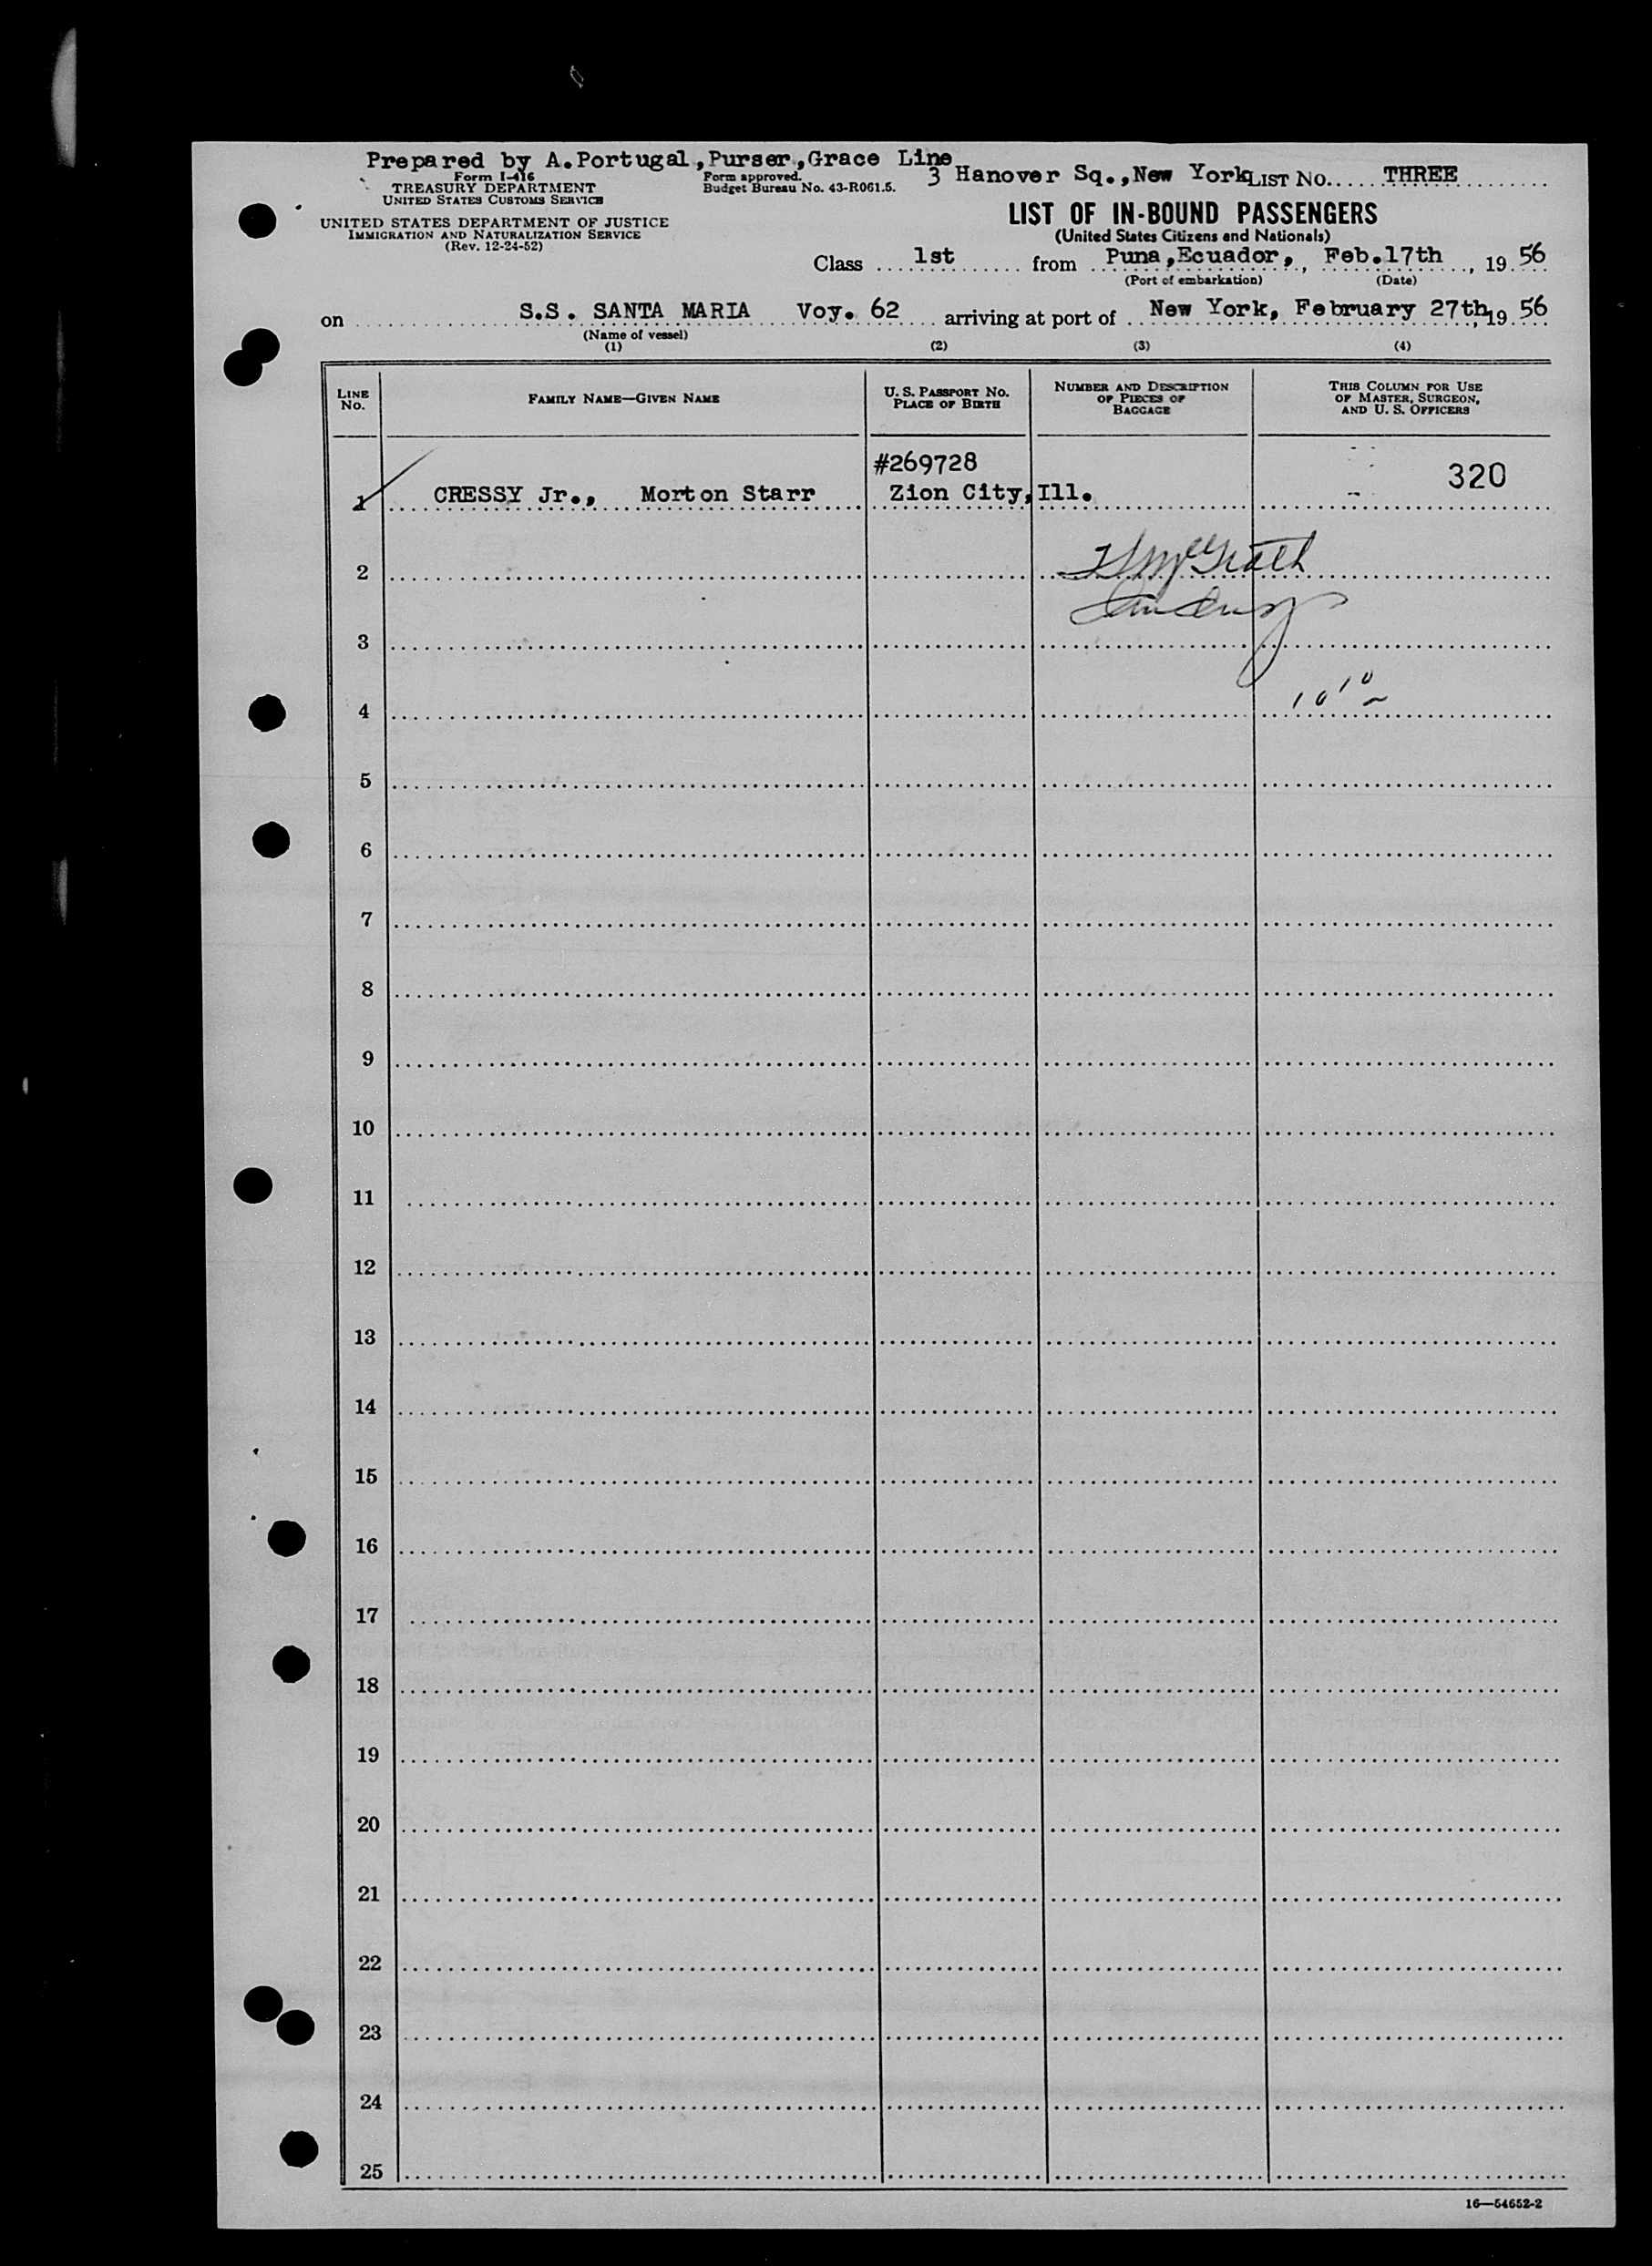 Prepared by A.Portugal,Purser,Grace Line
3 Hanover Sq.,New York
Form I-416
TREASURY DEPARTMENT
UNITED STATES CUSTOMS SERVICE
Form approved.
Budget Bureau No. 43-R061.5.
LIST NO. THREE
UNITED STATES DEPARTMENT OF JUSTICE
IMMIGRATION AND NATURALIZATION SERVICE
(Rev. 12-24-52)
LIST OF IN-BOUND PASSENGERS
(United States Citizens and Nationals)
Class 1st from Puna,Ecuador, Feb.17th, 19 56
(Port of embarkation) (Date)
on S.S. SANTA MARIA Voy. 62 arriving at port of New York, February 27th, 19 56
(Name of vessel)
(1) (2) (3) (4)
LINE NO.
FAMILY NAME—GIVEN NAME
U. S. PASSPORT NO.
PLACE OF BIRTH
NUMBER AND DESCRIPTION
OF PIECES OF
BAGGAGE
THIS COLUMN FOR USE
OF MASTER, SURGEON,
AND U. S. OFFICERS
#269728
1 CRESSY Jr., Morton Starr Zion City,Ill. 320
2 McGrath
3
4
5
6
7
8
9
10
11
12
13
14
15
16
17
18
19
20
21
22
23
24
25
16—54652-2